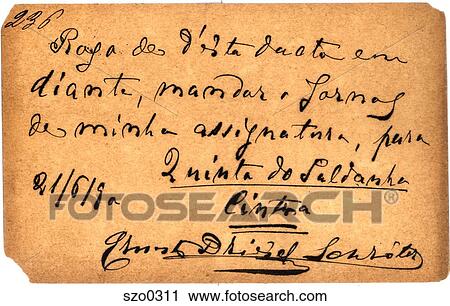 236
Rogo de d'esta dacta em
diante, mandar o Jornal
de minha assignatura, para
Quinta do Saldanha
21/6/90
Cintra
FOTOSEARCH
Ernesto Driezel Schröter
szo0311 www.fotosearch.com